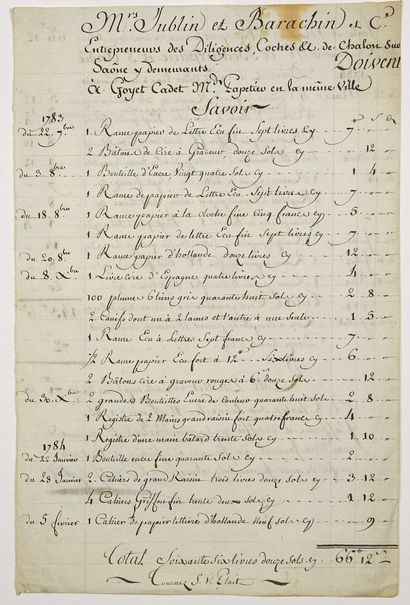 Mrs. Jublin et Barachin et Ce.
Entrepreneurs des Diligences, Coches &c de Chalon Sur
Saône y demeurants Doivent
à Goyet Cadet Md. Papetier en la même Ville
Savoir
1783
du 22. 7bre 1 Rame papier de Lettre Ecu fin Sept livres Cy 7
2 Bâton de Cire à Graveur, douze Sols Cy 12
du 3. 8bre 1 Bouteille d'Encre Vingt quatre Sols Cy 1 4
1 Rame de papier de Lettre Ecu Sept livres Cy 7
du 18. 8bre 1 Rame papier à la cloche fine Cinq francs Cy 5
1 Rame papier de lettre Ecu fin Sept livres Cy 7
du 20. 8bre 1 Rame papier d'hollande douze livres Cy 12
du 8. Xbre 1 Livre Cire d'Espagne quatre livres Cy 4
100 plume 6 liens gris quarante huit Sols Cy 2 8
2 Canifs dont un à 2 lames et l'autre à une Seule 1 5
1 Rame Ecu à Lettres Sept francs Cy 7
1/2 Rame papier Ecu fort à 12 Six livres Cy 6
2 Bâtons Cire à graveur rouge à 6 douze Sols 12
du 30. Xbre 2 grandes Bouteilles Encre de Couleur quarante huit Sols 2 8
1 Registre de 2 Mains grand raisin fort quatre francs Cy 4
1784 1 Registre d'une main bâtard trente Sols Cy 1 10
du 22 Janvier 1 Bouteille encre fine quarante Sols Cy 2
du 28 Janvier 2 Cahiers de grand Raisin trois livres douze Sols Cy 3 12
4 Cahiers Griffon fin trente deux Sols Cy 1 12
du 5 fevrier 1 Cahier de papier tellière d'hollande Neuf Sols Cy 9
Total Soixante Six livres douze Sols Cy 66 12
Tournez S. V. Plait